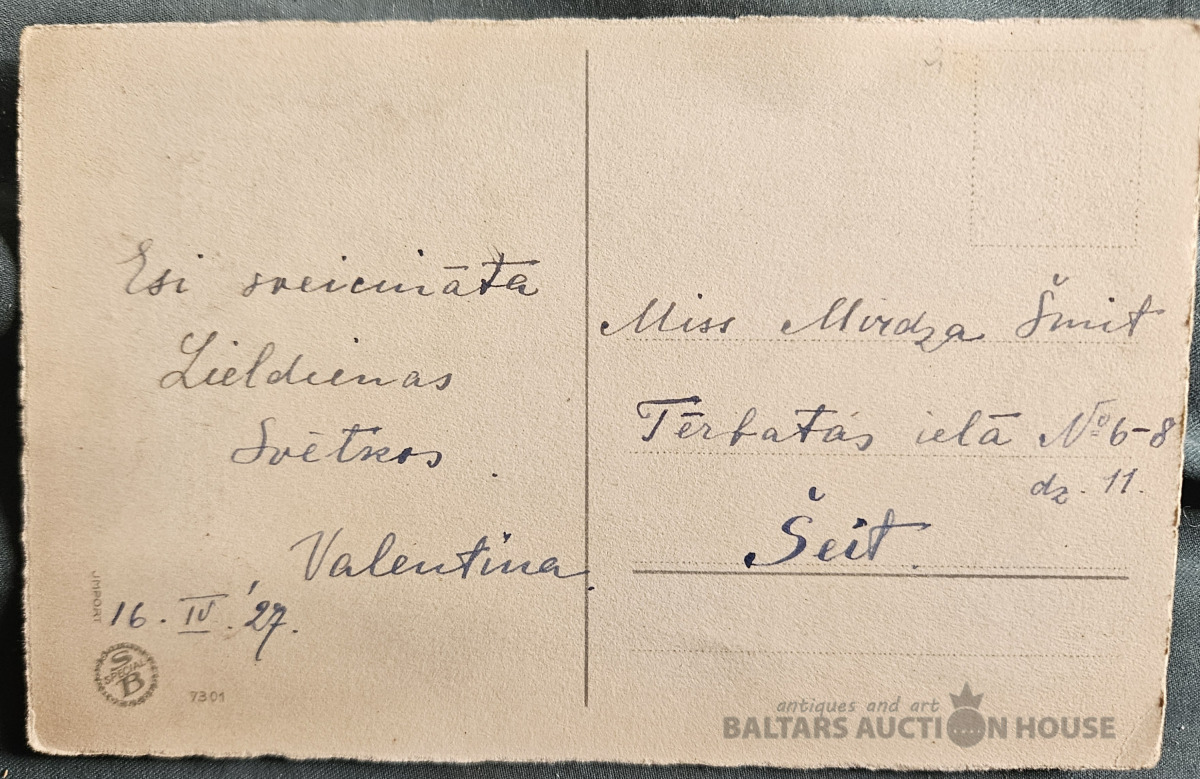 Esi sveicināta
Lieldienas
Svētkos.
Valentina.
16. IV. '27.
JMPORT
S
SPECIAL
B
7301
Miss Mirdza Šmit
Tērbatās ielā № 6-8
dz. 11.
Šeit.
antiques and art
BALTARS AUCTION HOUSE